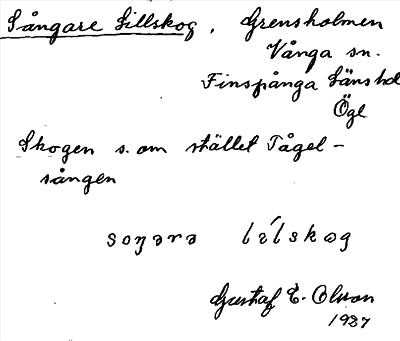 Sångare Lillskog, Grensholmen
Vånga sn.
Finspånga Länshd
Ögl
Skogen s. om stället Tågel-
sången
soŋərə lílskəg
Gustaf E. Olsson
1927